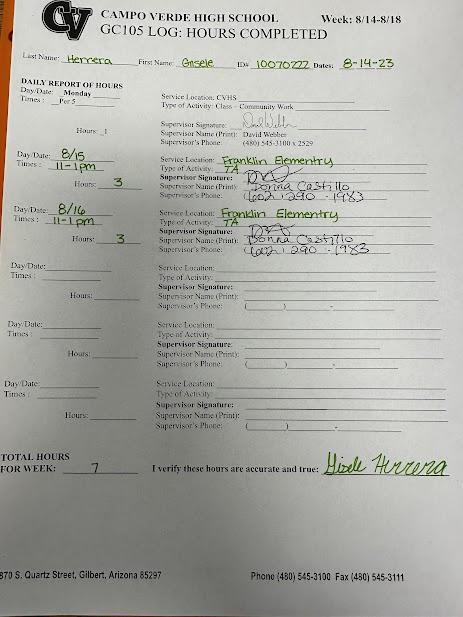 CV
CAMPO VERDE HIGH SCHOOL Week: 8/14-8/18
GC105 LOG: HOURS COMPLETED
Last Name: Herrera First Name: Gisele ID# 10070222 Dates: 8-14-23
DAILY REPORT OF HOURS
Day/Date: Monday
Times : Per 5
Service Location: CVHS
Type of Activity: Class – Community Work
Supervisor Signature:
Hours: 1
Supervisor Name (Print): David Webber
Supervisor's Phone: (480) 545-3100 x 2529
Day/Date: 8/15
Times : 11-1pm
Service Location: Franklin Elementry
Type of Activity: TA
Supervisor Signature:
Hours: 3
Supervisor Name (Print): Donna Castillo
Supervisor's Phone: (602) 290 - 1983
Day/Date: 8/16
Times : 11-1pm
Service Location: Franklin Elementry
Type of Activity: TA
Supervisor Signature:
Hours: 3
Supervisor Name (Print): Donna Castillo
Supervisor's Phone: (602) 290 - 1983
Day/Date:
Times :
Service Location:
Type of Activity:
Supervisor Signature:
Hours:
Supervisor Name (Print):
Supervisor's Phone: ( ) -
Day/Date:
Times :
Service Location:
Type of Activity:
Supervisor Signature:
Hours:
Supervisor Name (Print):
Supervisor's Phone: ( ) -
Day/Date:
Times :
Service Location:
Type of Activity:
Supervisor Signature:
Hours:
Supervisor Name (Print):
Supervisor's Phone: ( ) -
TOTAL HOURS
FOR WEEK: 7 I verify these hours are accurate and true: Gisele Herrera
870 S. Quartz Street, Gilbert, Arizona 85297 Phone (480) 545-3100 Fax (480) 545-3111